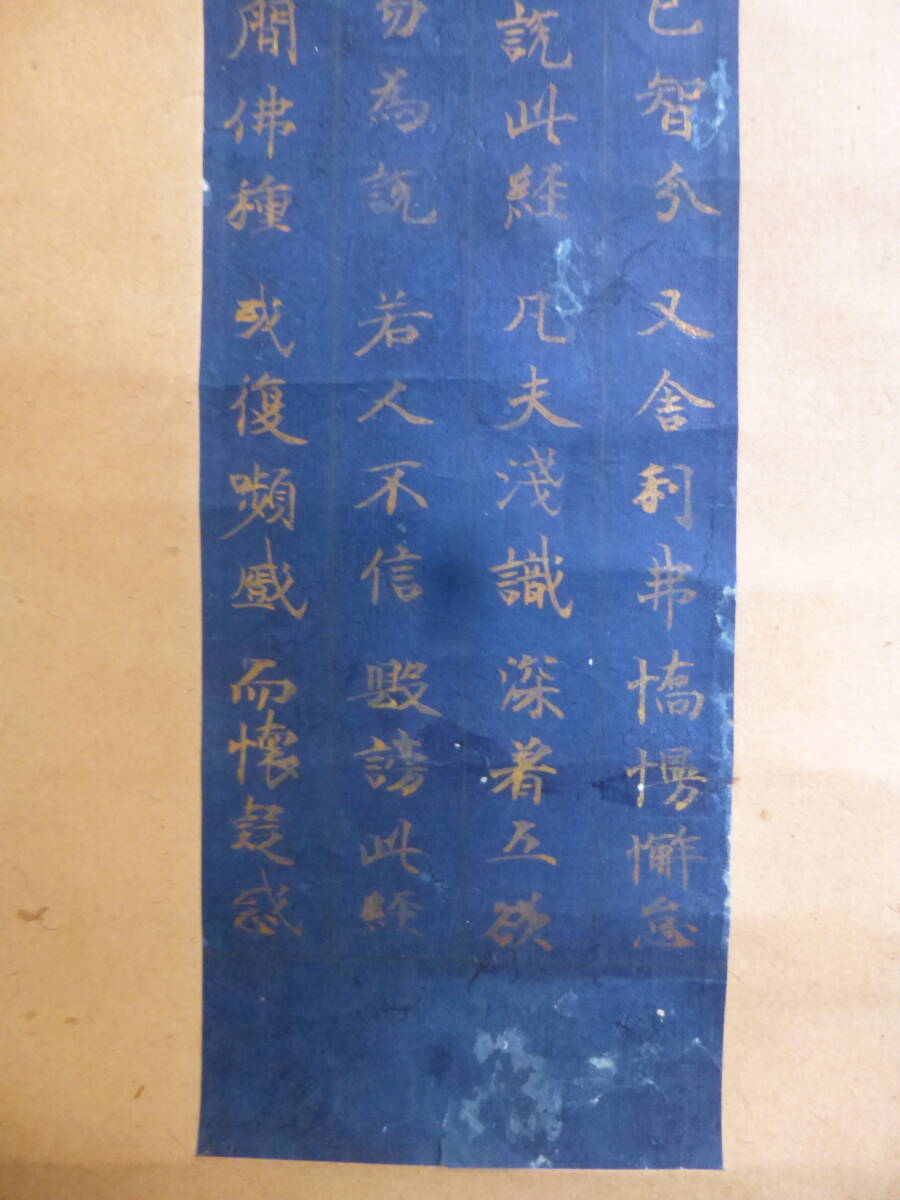 已智分 又舍利弗 憍慢懈怠
說此経 凡夫淺識 深著五欲
勿為說 若人不信 毀謗此経
間佛種 或復顰蹙 而懷疑惑